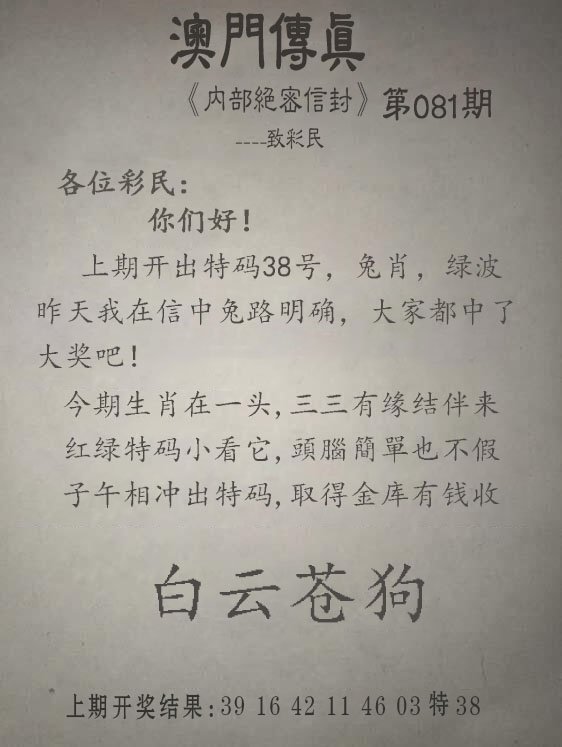 澳門傳眞
《内部絕密信封》第081期
----致彩民
各位彩民:
你们好!
上期开出特码38号，兔肖，绿波
昨天我在信中兔路明确，大家都中了
大奖吧!
今期生肖在一头,三三有缘结伴来
红绿特码小看它,頭腦簡單也不假
子午相冲出特码,取得金库有钱收
白云苍狗
上期开奖结果:39 16 42 11 46 03 特 38